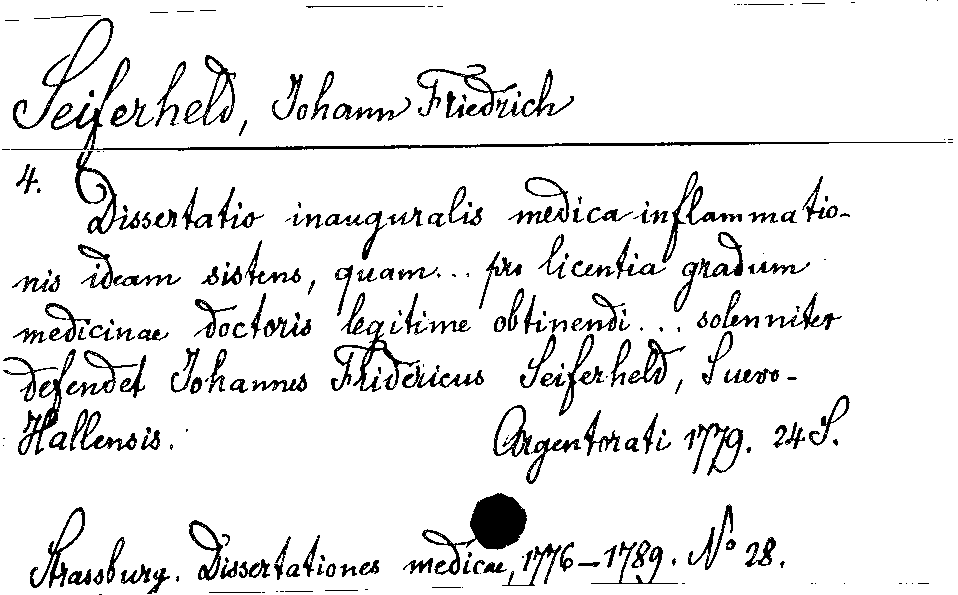 Seiferheld, Johann Friedrich
4.
Dissertatio inauguralis medica inflammatio-
nis ideam sistens, quam... pro licentia gradum
medicinae doctoris legitime obtinendi... solenniter
defendet Johannes Fridericus Seiferheld, Suevo-
Hallensis. Argentorati 1779. 24 S.
Strassburg. Dissertationes medicae, 1776-1789. No 28.